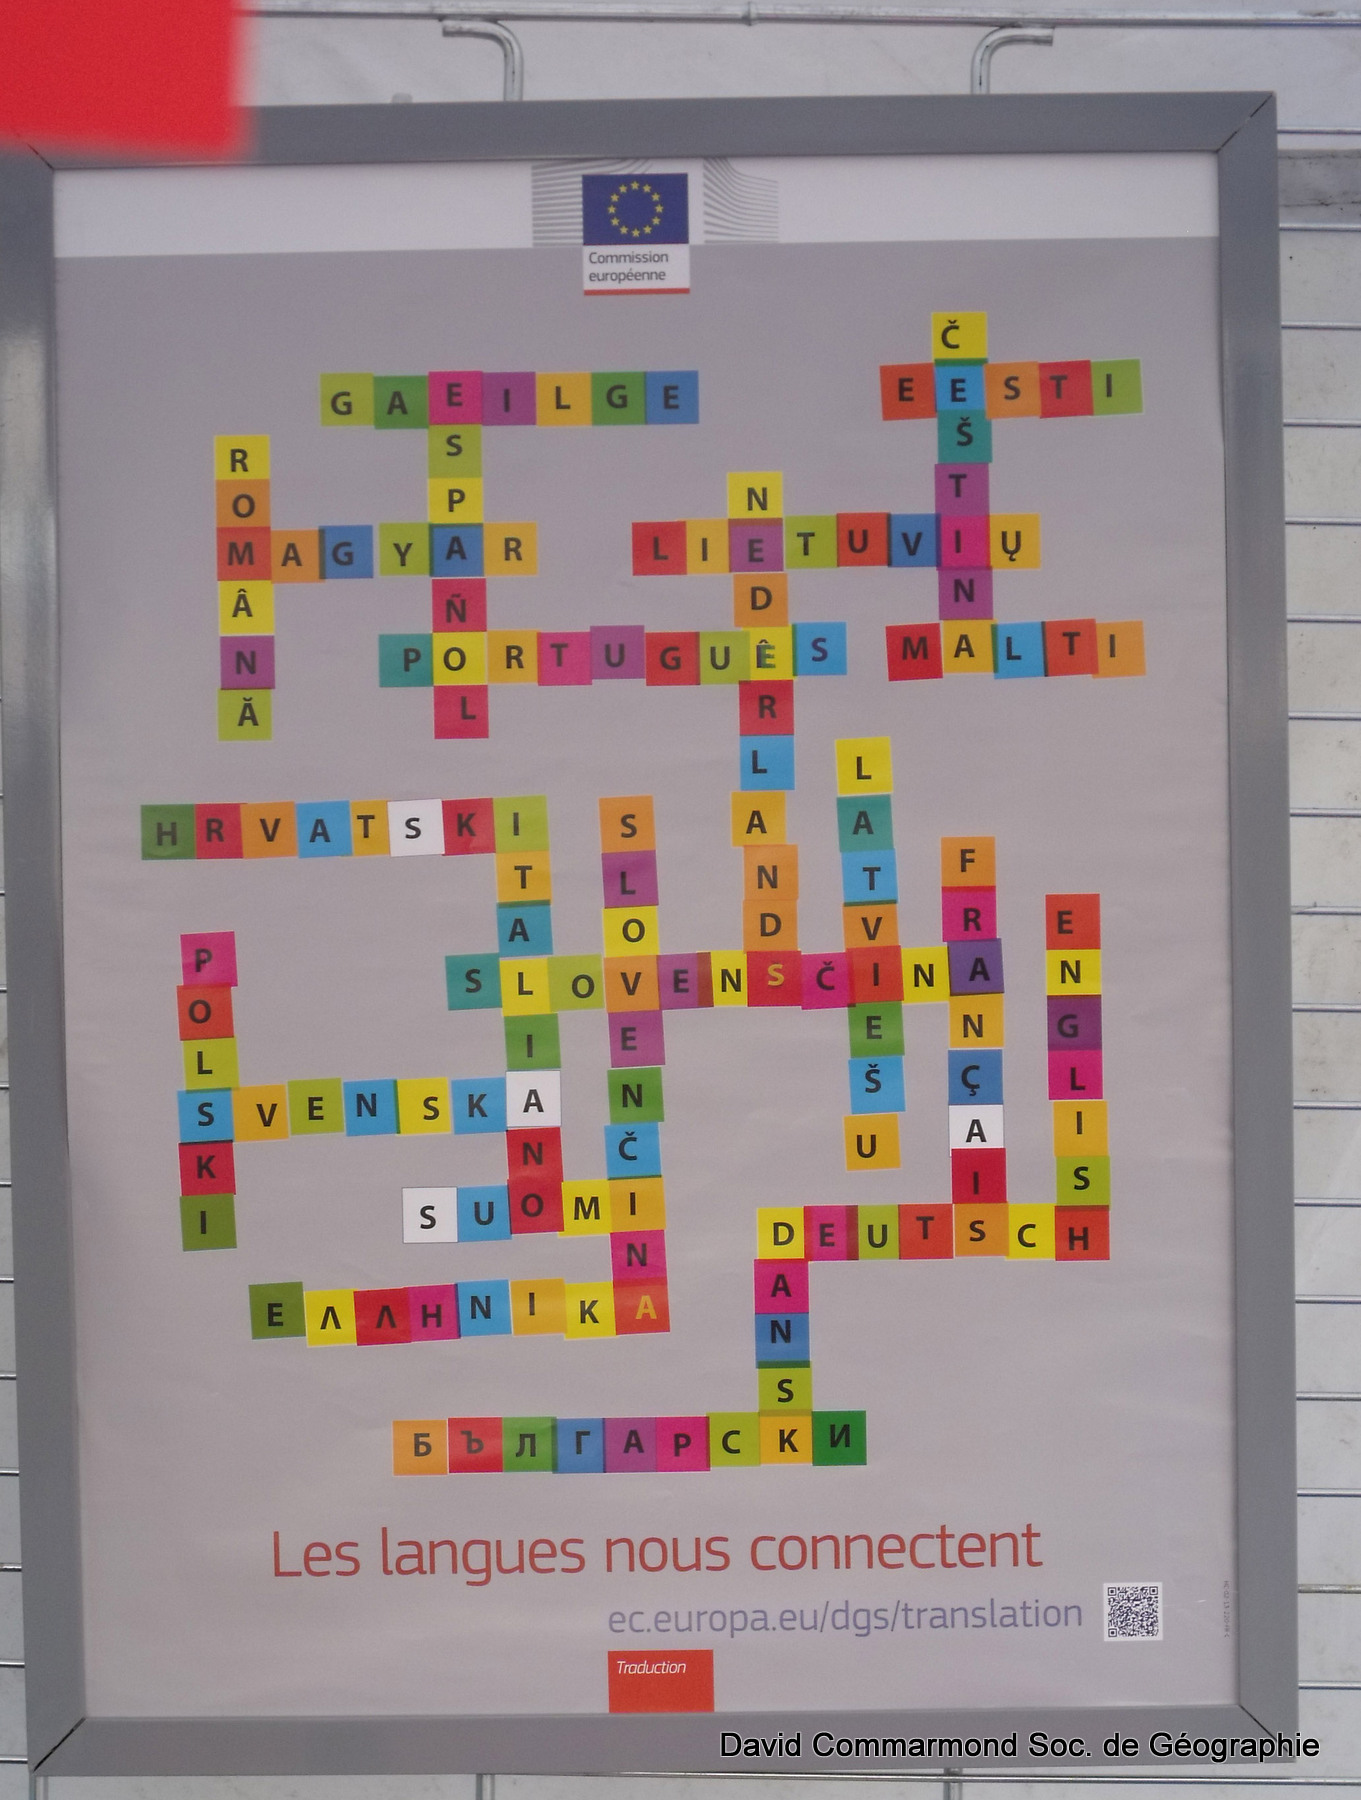 Commission
européenne
ČEŠTINA
GAEILGE
EESTI
ESPAÑOL
ROMÂNĂ
NEDERLANDS
MAGYAR
LIETUVIŲ
PORTUGUÊS
MALTI
LATVIEŠU
HRVATSKI
ITALIANO
SLOVENČINA
FRANÇAIS
ENGLISH
POLSKI
SLOVENŠČINA
SVENSKA
SUOMI
DEUTSCH
DANSK
ΕΛΛΗΝΙΚΑ
БЪЛГАРСКИ
Les langues nous connectent
ec.europa.eu/dgs/translation
Traduction
David Commarmond Soc. de Géographie